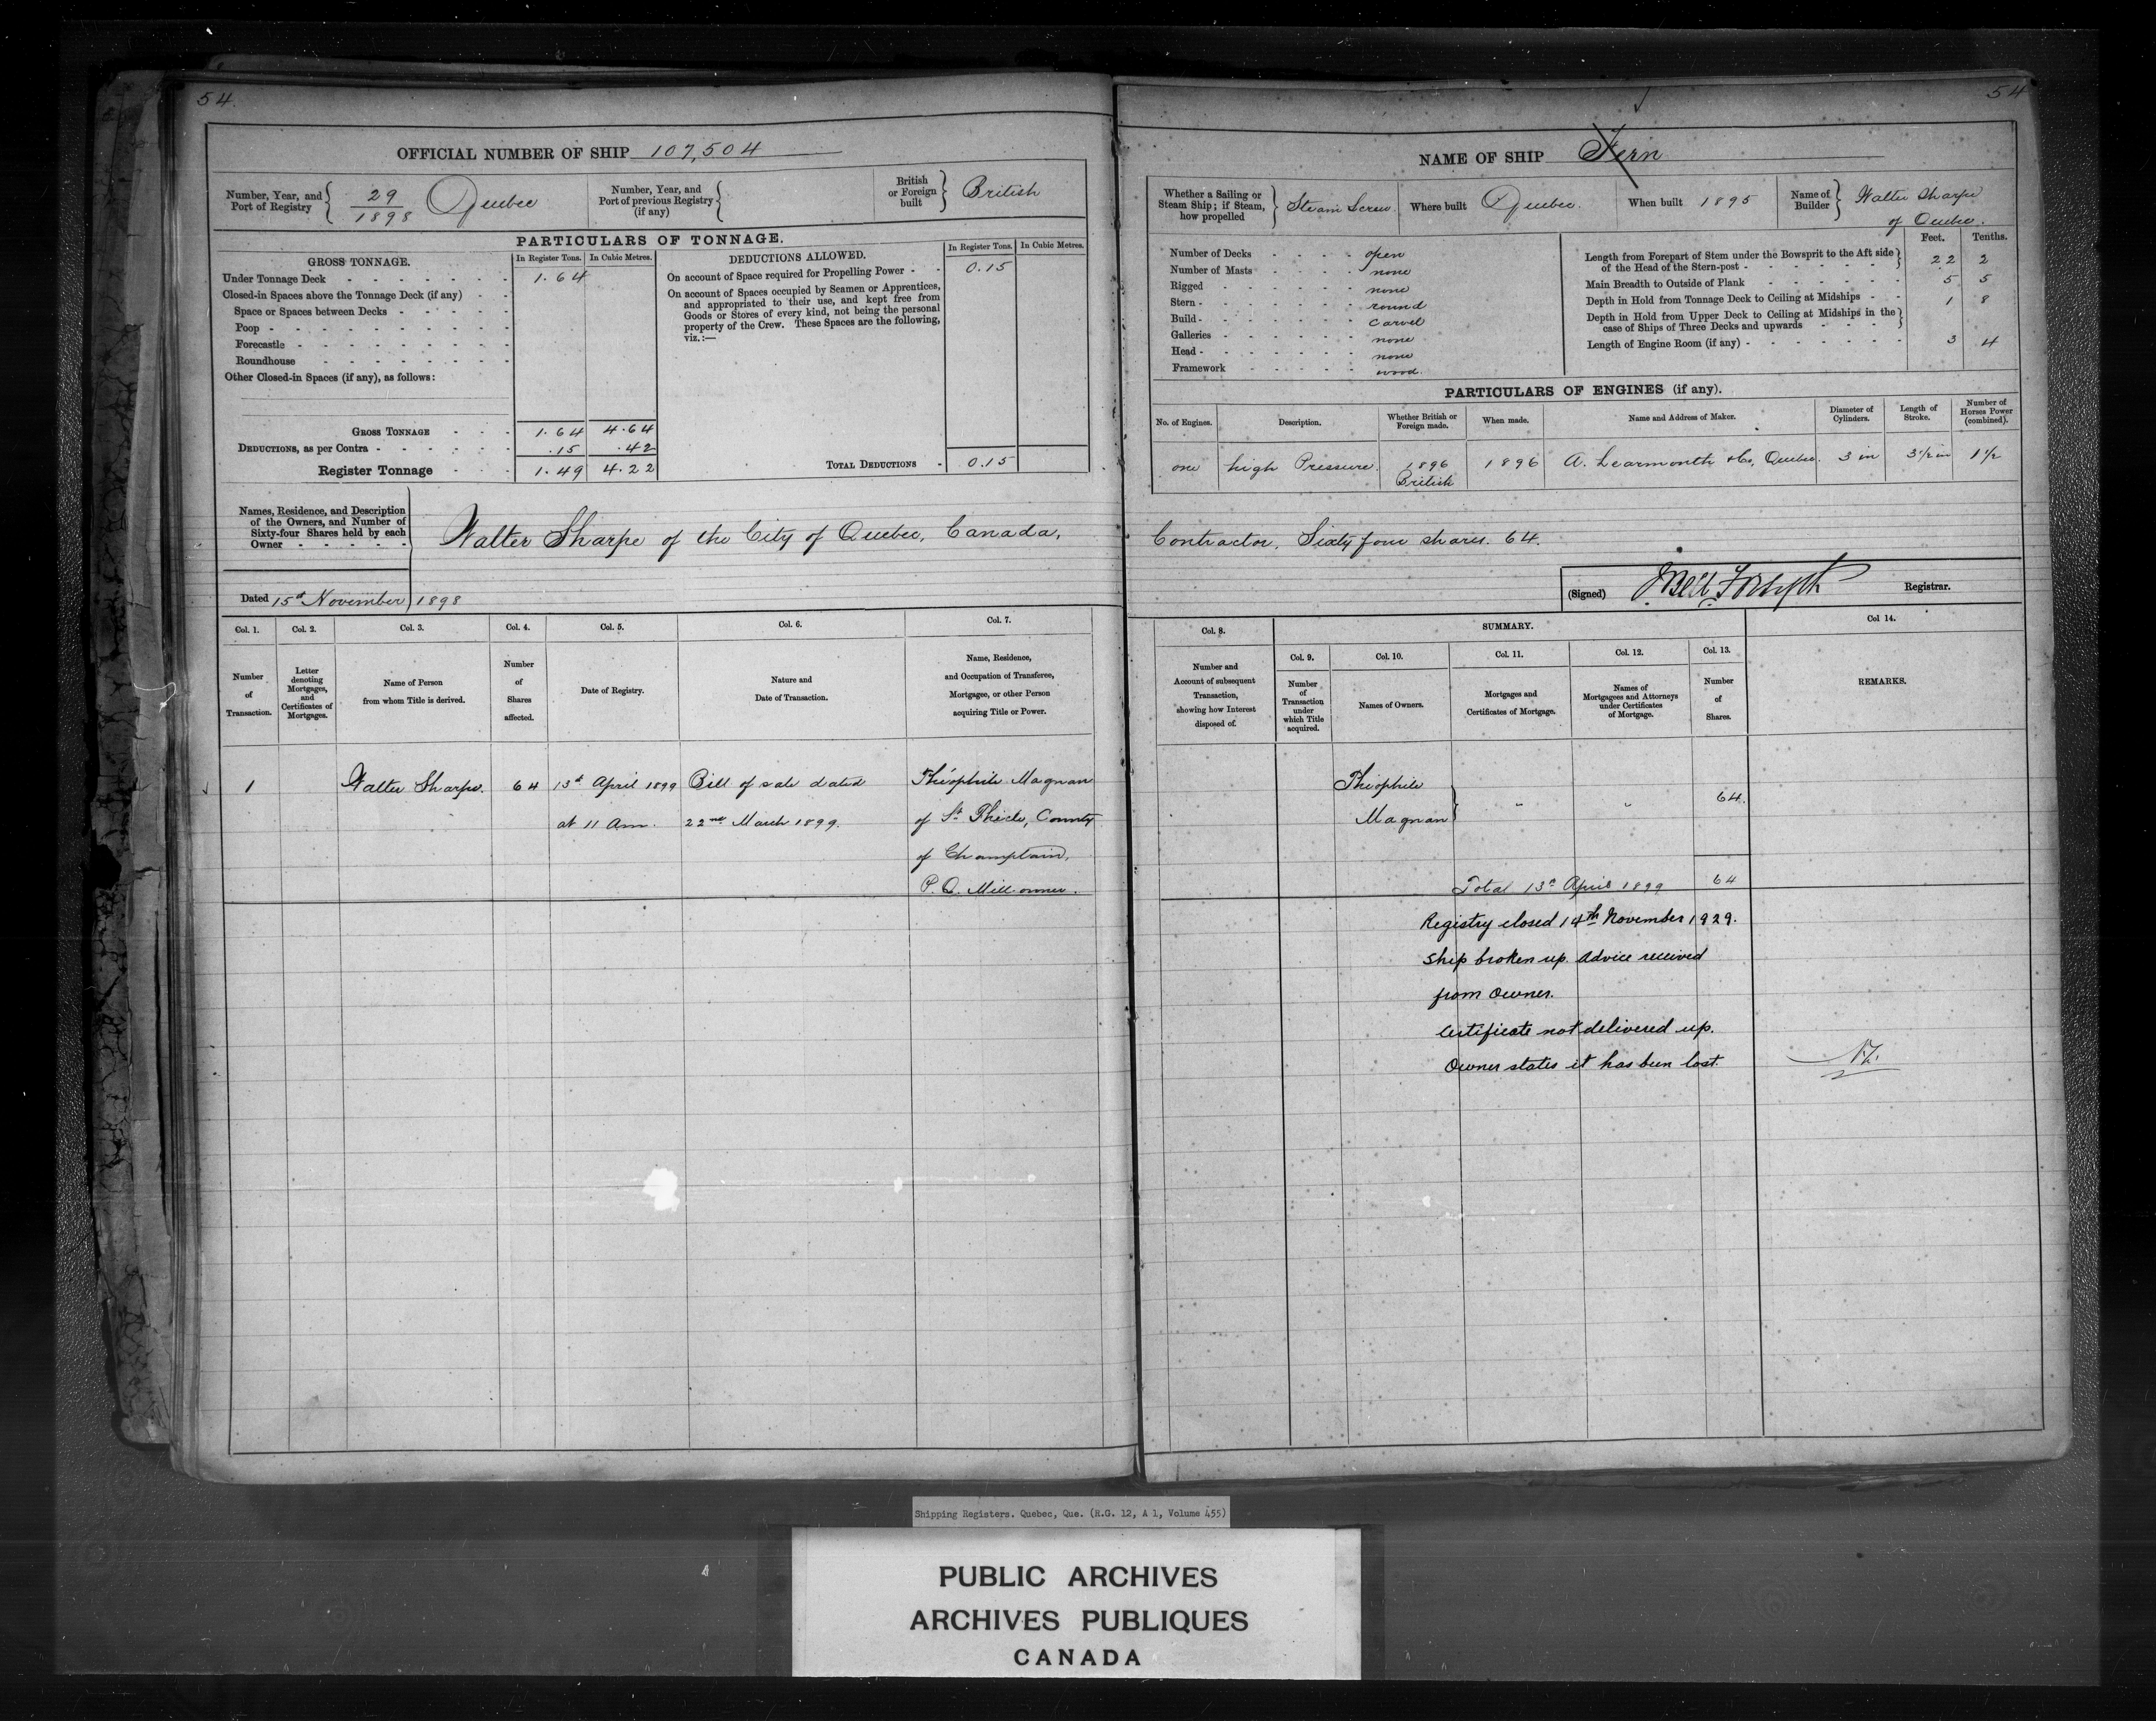 54.
OFFICIAL NUMBER OF SHIP 107,504
Number, Year, and Port of Registry { 29/1898 Quebec
Number, Year, and Port of previous Registry (if any) {
British or Foreign built } British
PARTICULARS OF TONNAGE.
GROSS TONNAGE. In Register Tons. In Cubic Metres.
Under Tonnage Deck - - - - - - 1.64
Closed-in Spaces above the Tonnage Deck (if any) - -
Space or Spaces between Decks - - - - -
Poop - - - - - - - - - -
Forecastle - - - - - - - - -
Roundhouse - - - - - - - -
Other Closed-in Spaces (if any), as follows:
GROSS TONNAGE - - - 1.64 4.64
DEDUCTIONS, as per Contra - - - - - - .15 .42
Register Tonnage - - - 1.49 4.22
DEDUCTIONS ALLOWED. In Register Tons. In Cubic Metres.
On account of Space required for Propelling Power - - 0.15
On account of Spaces occupied by Seamen or Apprentices,
and appropriated to their use, and kept free from
Goods or Stores of every kind, not being the personal
property of the Crew. These Spaces are the following,
viz.:—
TOTAL DEDUCTIONS - 0.15
Names, Residence, and Description
of the Owners, and Number of
Sixty-four Shares held by each
Owner - - - - -
Walter Sharpe of the City of Quebec, Canada,
Dated 15th November 1898
Col. 1. Col. 2. Col. 3. Col. 4. Col. 5. Col. 6. Col. 7.
Number of Transaction.
Letter denoting Mortgages, and Certificates of Mortgages.
Name of Person from whom Title is derived.
Number of Shares affected.
Date of Registry.
Nature and Date of Transaction.
Name, Residence, and Occupation of Transferee, Mortgagee, or other Person acquiring Title or Power.
1 Walter Sharpe. 64 13th April 1899 Bill of sale dated Théophile Magnan
at 11 Am. 22nd March 1899. of St. Thècle, County
of Champlain,
P.Q. Mill-owner.
54
NAME OF SHIP Fern
Whether a Sailing or Steam Ship; if Steam, how propelled } Steam Screw
Where built Quebec.
When built 1895
Name of Builder } Walter Sharpe
of Quebec.
Number of Decks - - - - open
Number of Masts - - - - none
Rigged - - - - - - none
Stern - - - - - - - round
Build - - - - - - - carvel
Galleries - - - - - - none
Head - - - - - - - none
Framework - - - - - wood.
Feet. Tenths.
Length from Forepart of Stem under the Bowsprit to the Aft side
of the Head of the Stern-post - - - - - - - } 22 2
Main Breadth to Outside of Plank - - - - - - 5 5
Depth in Hold from Tonnage Deck to Ceiling at Midships - - 1 8
Depth in Hold from Upper Deck to Ceiling at Midships in the
case of Ships of Three Decks and upwards - - - - }
Length of Engine Room (if any) - - - - - - - 3 4
PARTICULARS OF ENGINES (if any).
No. of Engines. Description. Whether British or Foreign made. When made. Name and Address of Maker. Diameter of Cylinders. Length of Stroke. Number of Horses Power (combined).
one high Pressure. 1896 British 1896 A. Learmonth & Co, Quebec. 3 in 3 1/2 in 1 1/2
Contractor, Sixty four shares. 64.
(Signed) Forsyth Registrar.
Col. 8. SUMMARY. Col 14.
Col. 9. Col. 10. Col. 11. Col. 12. Col. 13.
Number and Account of subsequent Transaction, showing how Interest disposed of.
Number of Transaction under which Title acquired.
Names of Owners.
Mortgages and Certificates of Mortgage.
Names of Mortgagees and Attorneys under Certificates of Mortgage.
Number of Shares.
REMARKS.
Théophile
Magnan } " " 64.
Total 13th April 1899 64
Registry closed 14th November 1929.
Ship broken up. Advice received
from Owner.
Certificate not delivered up.
Owner states it has been lost.
Shipping Registers. Quebec, Que. (R.G. 12, A 1, Volume 455)
PUBLIC ARCHIVES
ARCHIVES PUBLIQUES
CANADA